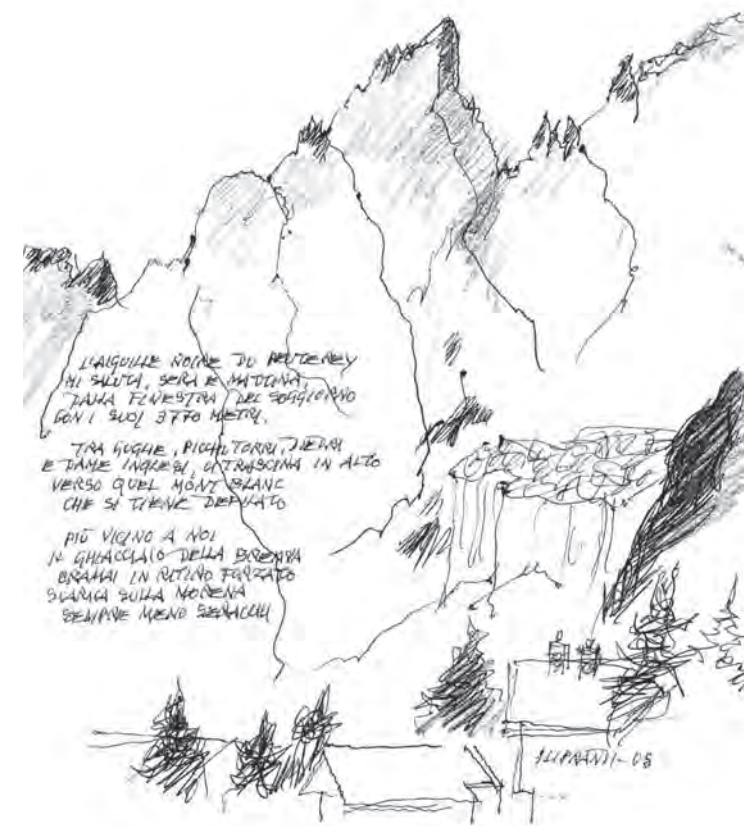 L'AIGUILLE NOIRE DU PEUTEREY
MI SALUTA, SERA E MATTINA,
DALLA FINESTRA DEL SOGGIORNO
CON I SUOI 3770 METRI.
TRA GUGLIE, PICCHI, TORRI, DIEDRI
E DAME INGLESI, CI TRASCINA IN ALTO
VERSO QUEL MONT BLANC
CHE SI TIENE DEFILATO
PIÙ VICINO A NOI
IL GHIACCIAIO DELLA BRENVA
ORAMAI IN RITIRO FORZATO
SCARICA SULLA MORENA
SEMPRE MENO SERACCHI
ILIPRANDI-08